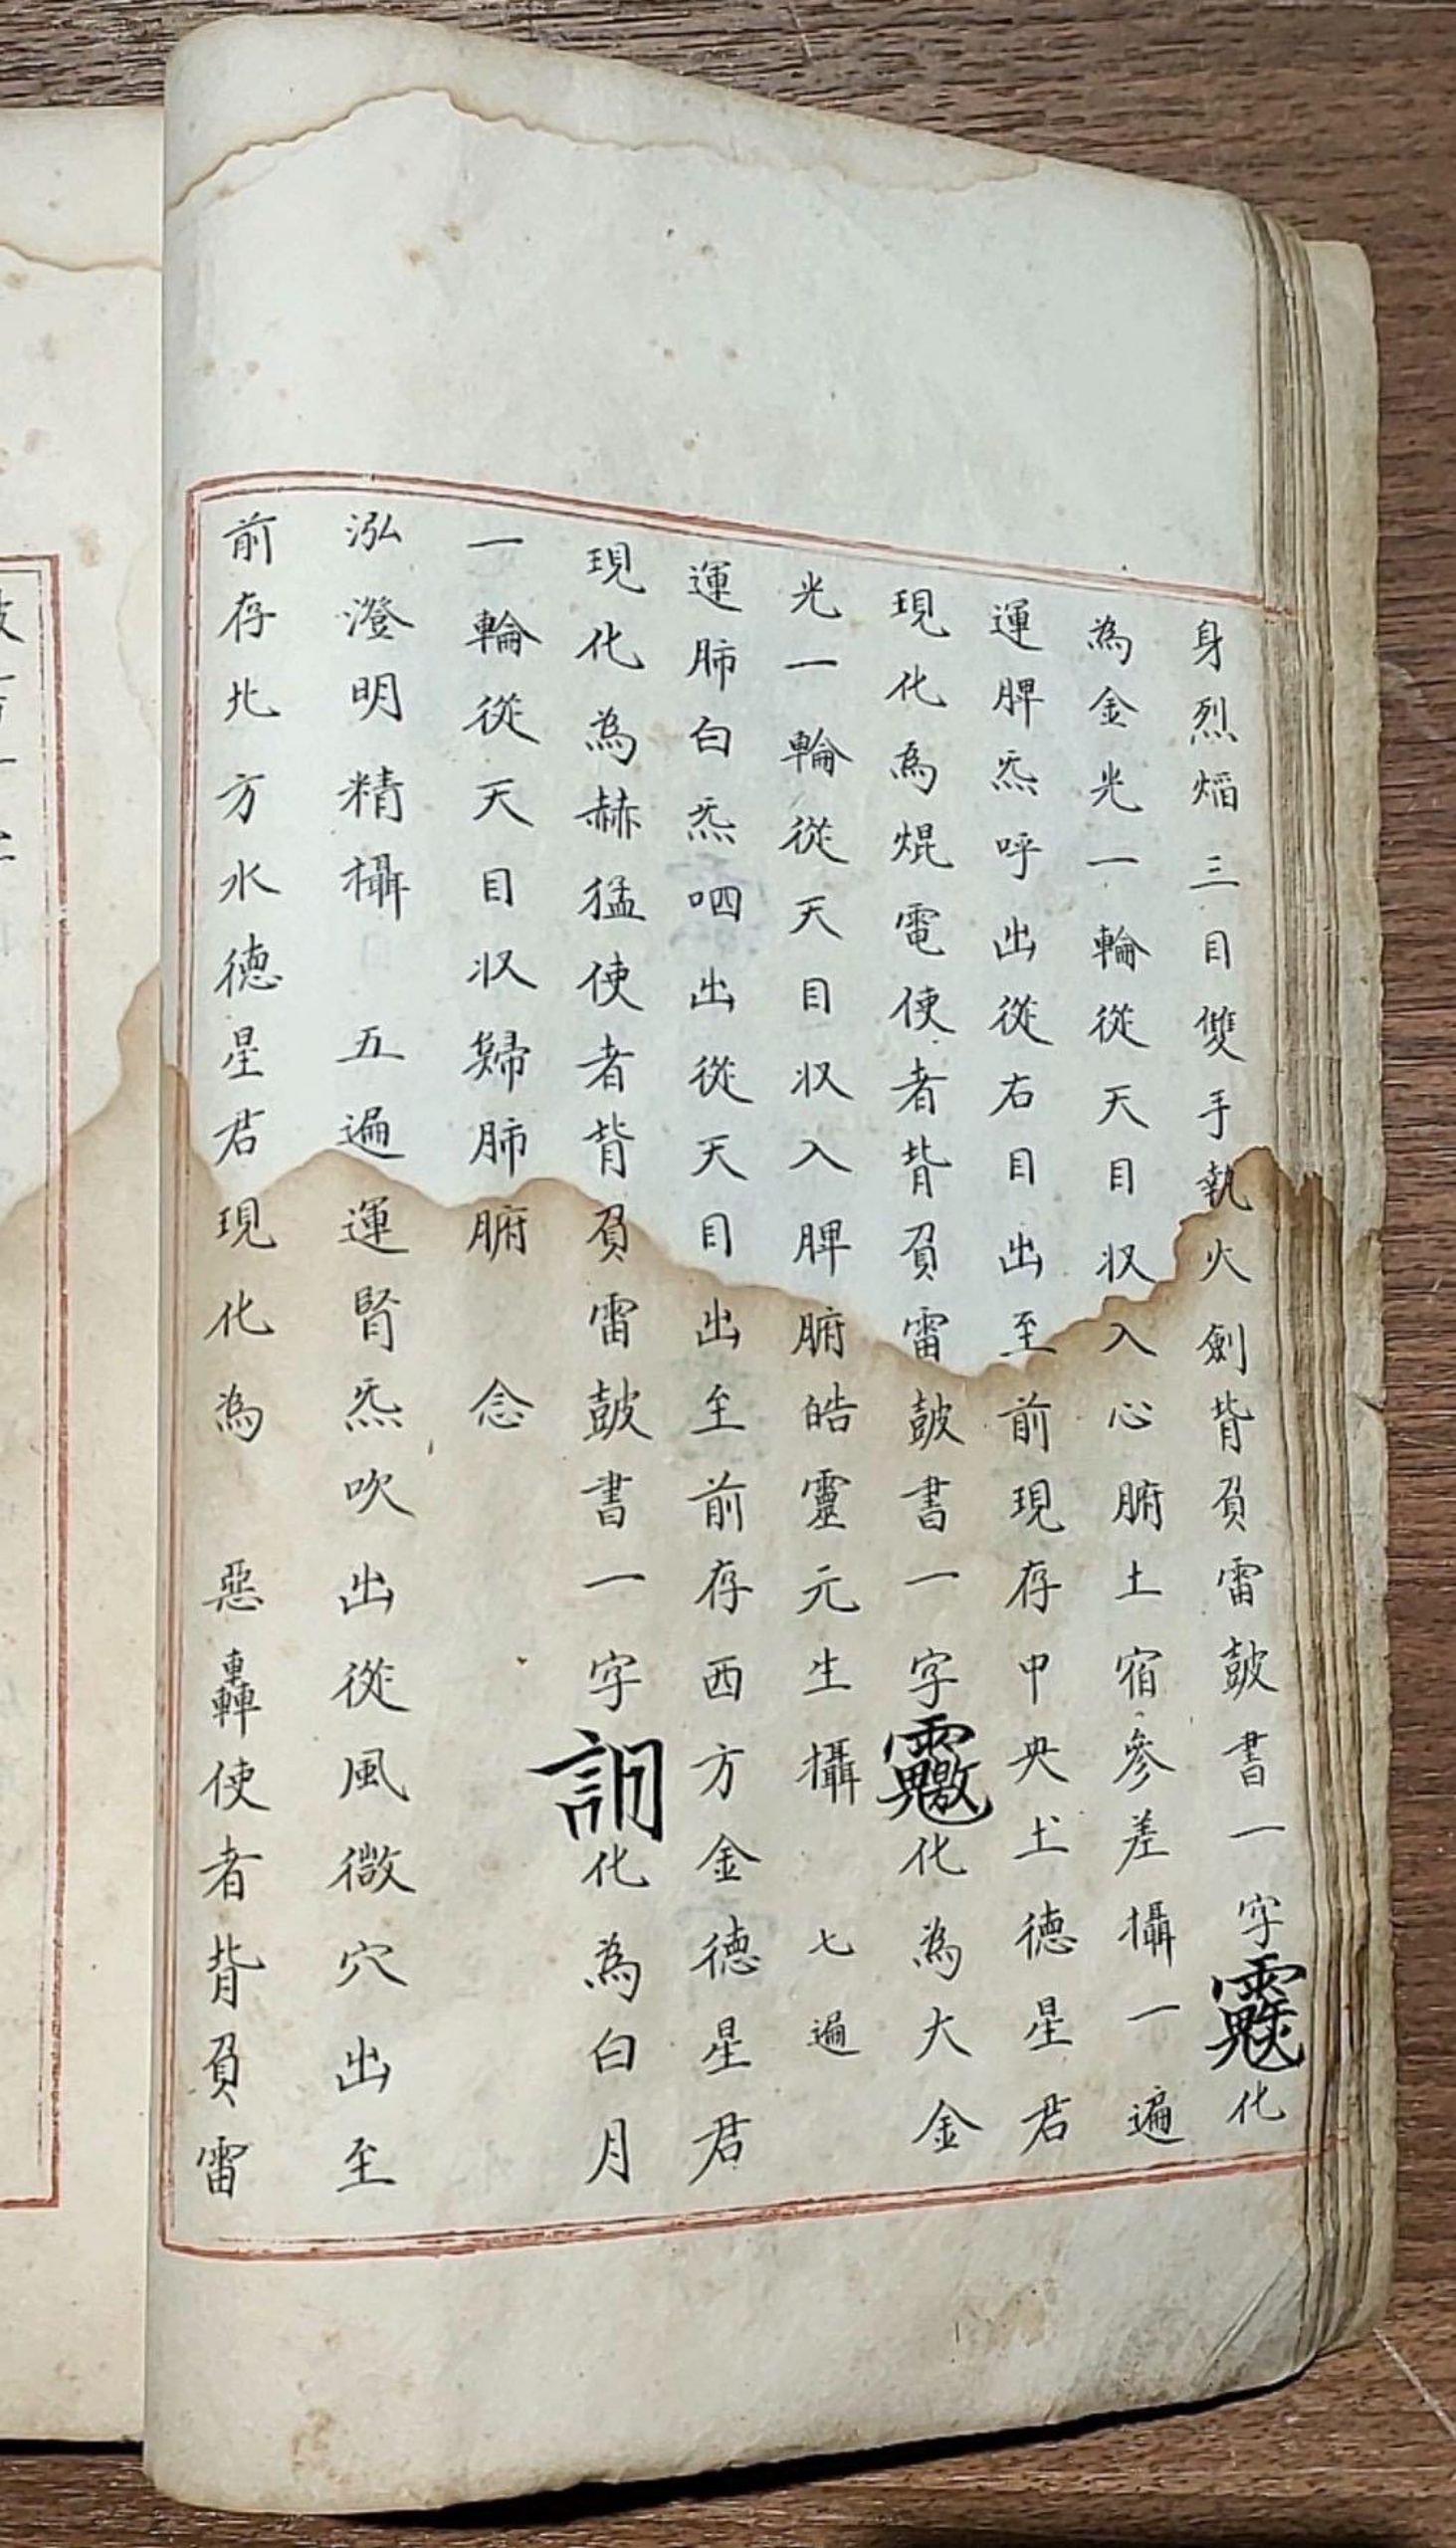 身烈焰三目雙手執火劍背負雷皷書一字化
為金光一輪從天目収入心腑土宿參差攝一遍
運脾炁呼出從右目出至前現存中央土德星君
現化為焜電使者背負雷皷書一字化為大金
光一輪從天目収入脾腑皓靈元生攝七遍
運肺白炁呬出從天目出至前存西方金德星君
現化為赫猛使者背負雷皷書一字化為白月
一輪從天目収歸肺腑念
泓澄明精攝五遍運腎炁吹出從風微穴出至
前存北方水德星君現化為惡轟使者背負雷